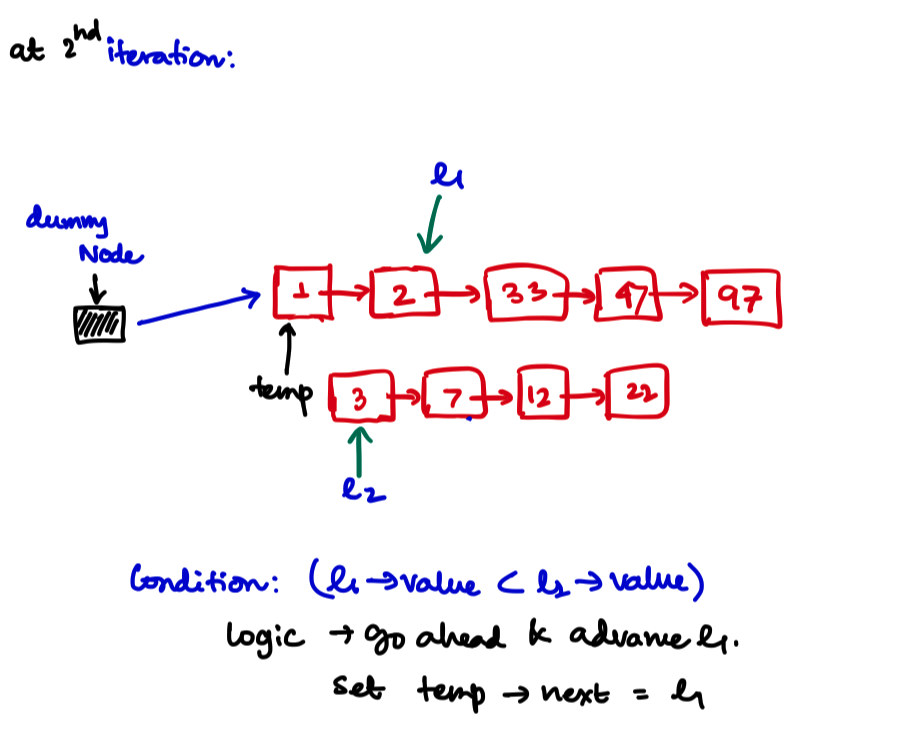 at 2nd iteration:
l1
dummy
Node
1 → 2 → 33 → 47 → 97
temp
3 → 7 → 12 → 22
l2
Condition: (l1→value < l2→value)
logic → go ahead & advance l1.
set temp → next = l1